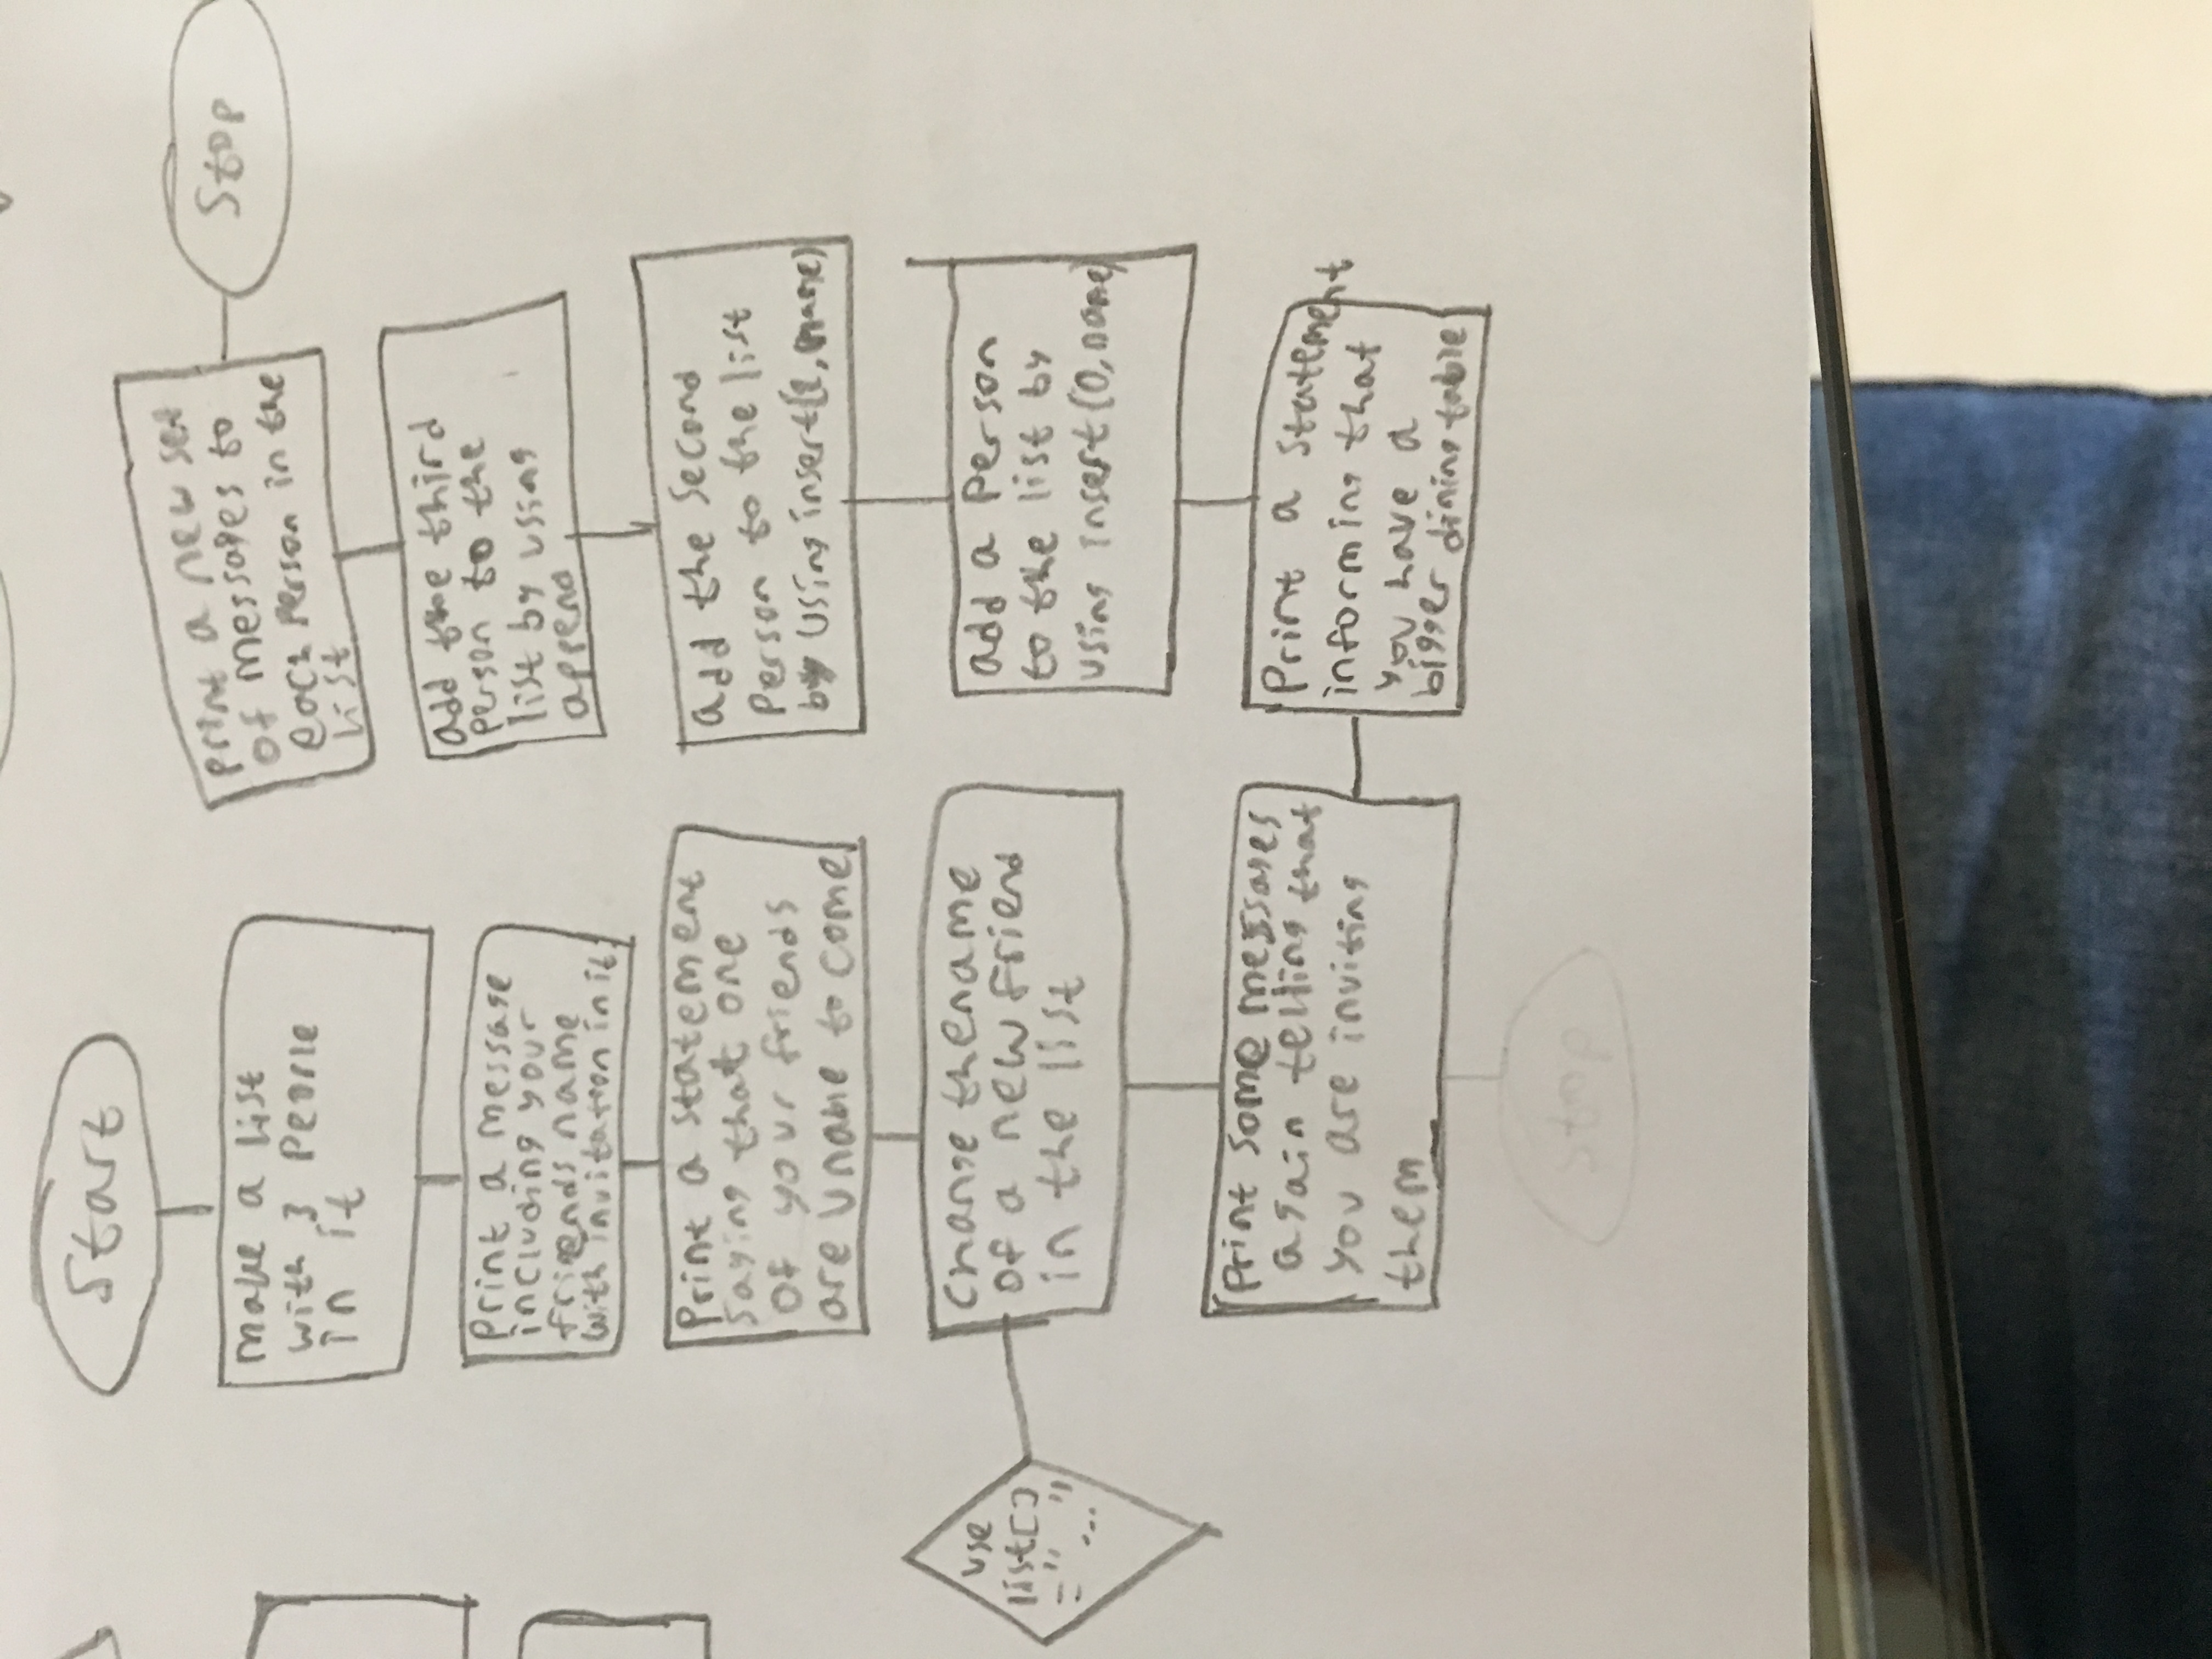 Start
make a list
with 3 people
in it
print a message
including your
friends name
with invitation in it.
print a statement
saying that one
of your friends
are unable to come.
change the name
of a new friend
in the list
use
list[]
="..."
print some messages
again telling that
you are inviting
them
stop
print a statement
informing that
you have a
bigger dining table
add a person
to the list by
using insert(0,name)
add the second
person to the list
by using insert(2,name)
add the third
person to the
list by using
append
print a new set
of messages to
each person in the
list
Stop